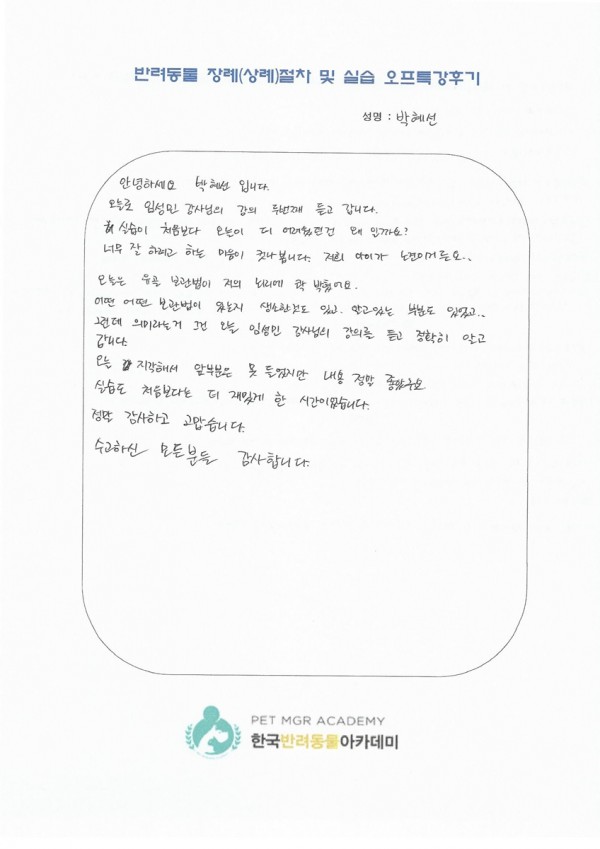 반려동물 장례(상례)절차 및 실습 오프특강후기
성명 : 박혜선
안녕하세요 박혜선 입니다.
오늘로 임성민 강사님의 강의 두번째 듣고 갑니다.
실습이 처음보다 오늘이 더 어려웠던건 왜 인가요?
너무 잘 하려고 하는 마음이 컷나봅니다. 저희 아이가 노견이거든요..
오늘은 유골 보관법이 저의 뇌리에 콱 박혔어요.
어떤 어떤 보관법이 있는지 생소한것도 있고. 알고있는 부분도 있었고..
그런데 의미라는거 그건 오늘 임성민 강사님의 강의를 듣고 정확히 알고
갑니다.
오늘 지각해서 앞부분은 못 들었지만 내용 정말 좋았구요
실습도 처음보다는 더 재밌게 한 시간이었습니다.
정말 감사하고 고맙습니다.
수고하신 모든분들 감사합니다.
PET MGR ACADEMY
한국반려동물아카데미